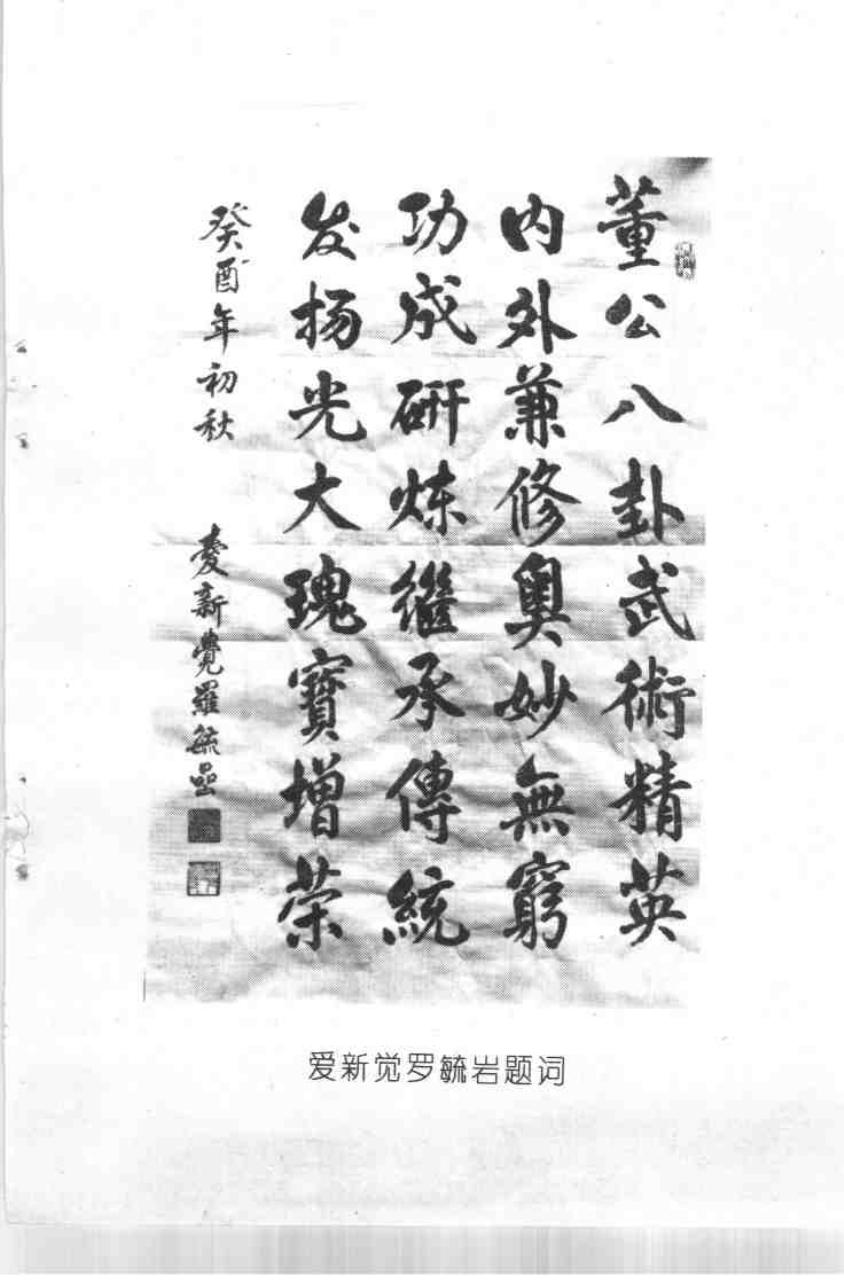 董公八卦武術精英
内外兼修奥妙無窮
功成研炼繼承傳統
发扬光大瑰寳增荣
癸酉年初秋
愛新覺羅毓嵒
爱新觉罗毓岩题词